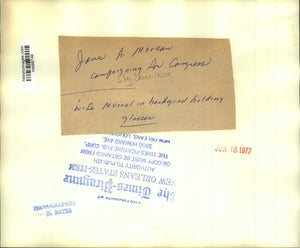 James A. Moreau
campaigning for Congress
wife Muriel in background holding
glasses
JUN 16 1977
The Times-Picayune
NEW ORLEANS STATES-ITEM
AUTHORITY TO PUBLISH
OR COPY MUST BE OBTAINED FROM
THE TIMES PICAYUNE PUB. CORP.
3800 HOWARD AVE.
NEW ORLEANS, LOUISIANA